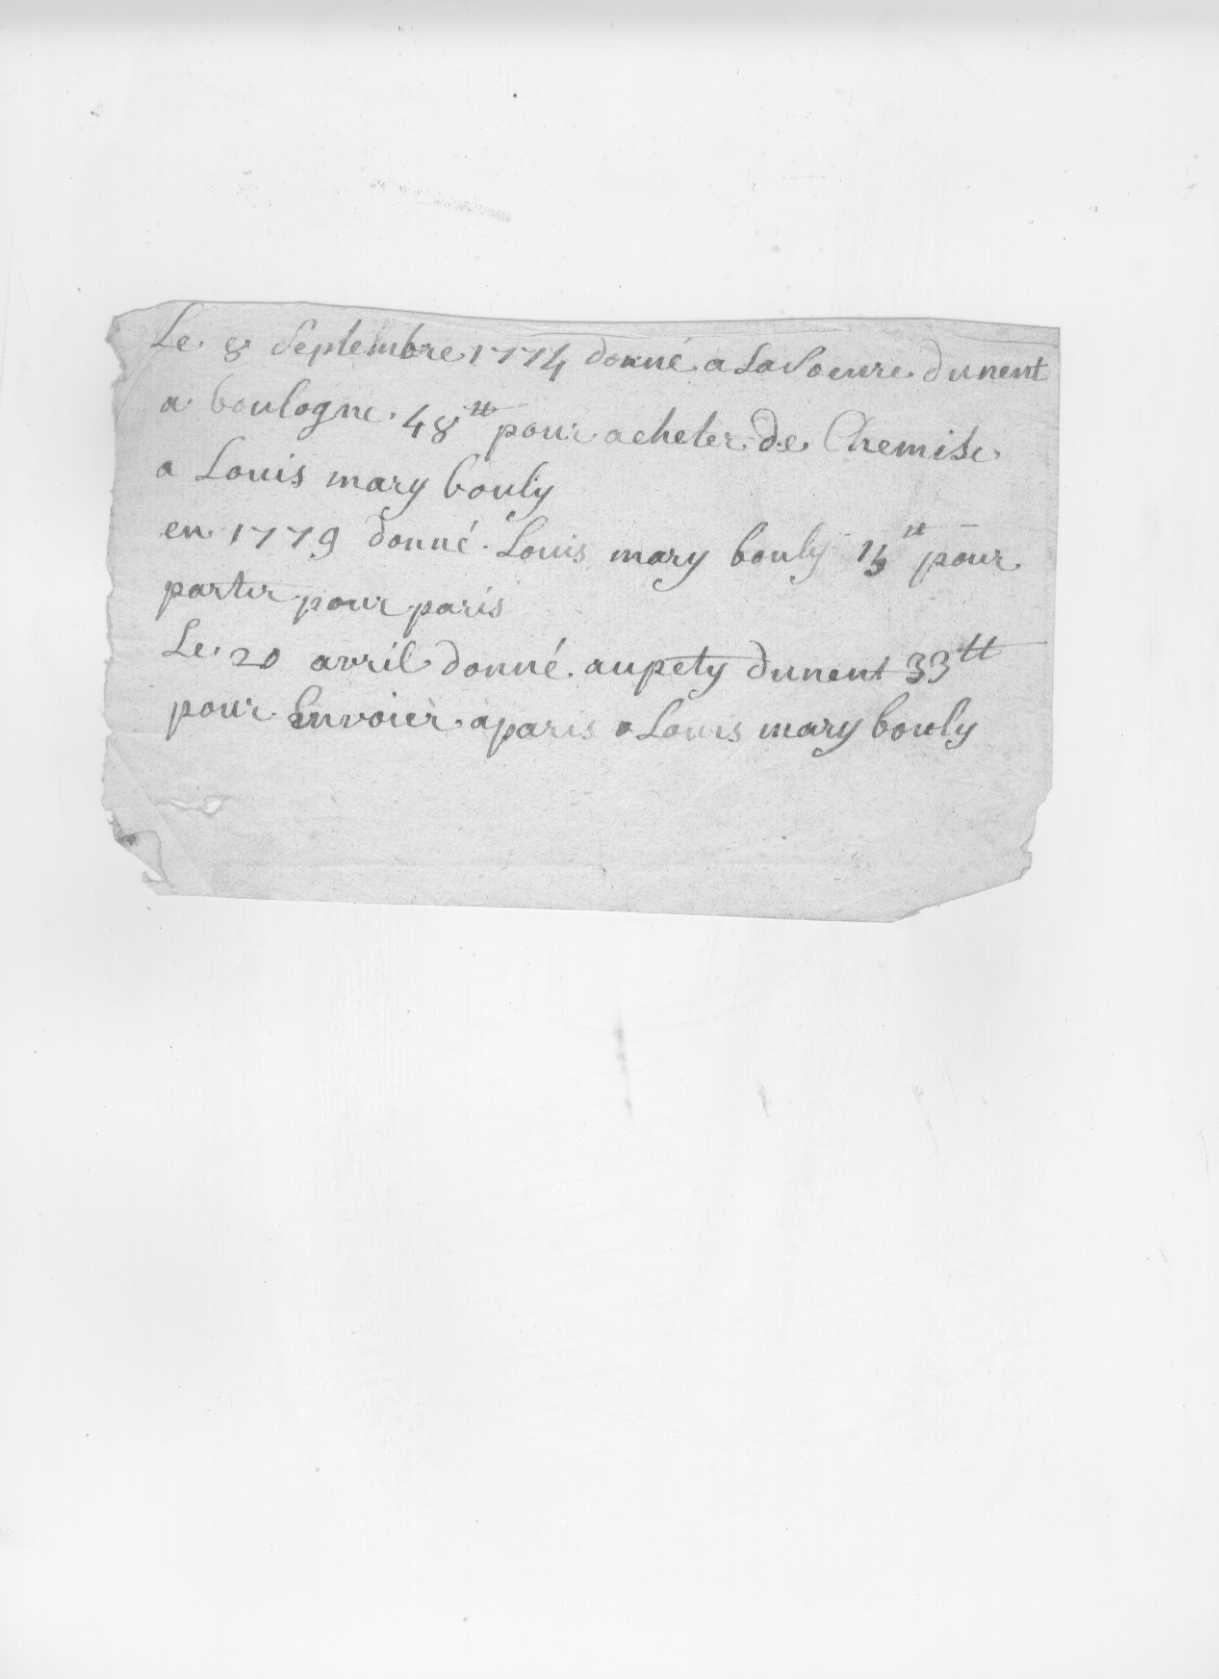 Le 8 Septembre 1774 donné a La Soeure dunent
a boulogne. 48tt pour acheter de Chemise
a Louis mary bouly
en 1779 donné. Louis mary bouly 15tt pour
partir pour paris
Le 20 avril donné. aupety dunent 33tt
pour Envoièr àparis a Louis mary bouly